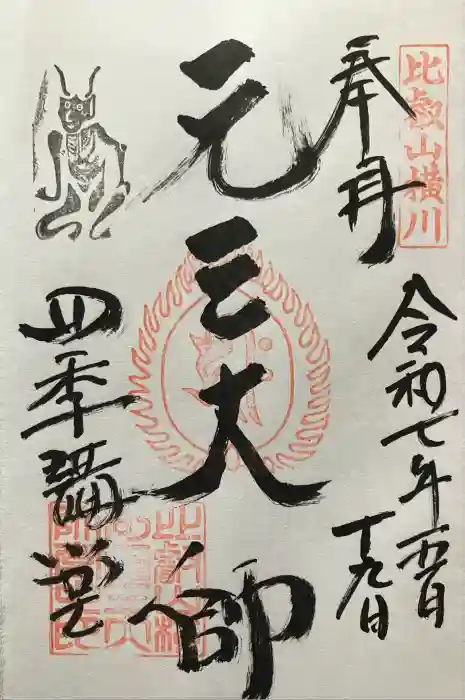 比叡山横川
奉拝
令和七年六月
十九日
元三大師
四季講堂